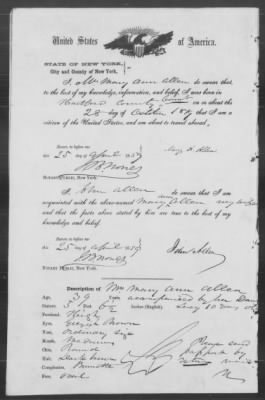 United States of America.
STATE OF NEW YORK,
City and County of New York,
I, Mrs Mary Ann Allen do swear that,
to the best of my knowledge, information, and belief, I was born in
Hartford County Conn on or about the
28 day of October ; that I am a
citizen of the United States, and am about to travel abroad,
Sworn to before me
this 25 day of April 185 Mary A. Allen
NOTARY PUBLIC, New York.
I, John Allen do swear that I am
acquainted with the above-named Mary Allen my
and that the facts above stated by her are true to the best of my
knowledge and belief.
Sworn to before me
this 25 day of April 185 John Allen
NOTARY PUBLIC, New York.
Description of Mrs Mary Ann Allen
Age, 39 accompanied by her
Stature, 5 Feet Inches (English)
Forehead, High
Eyes, Brown
Nose, Ordinary size
Mouth, Medium
Chin, Round
Hair, Dark brown
Complexion,
Face, Oval
Please send
passport by
return